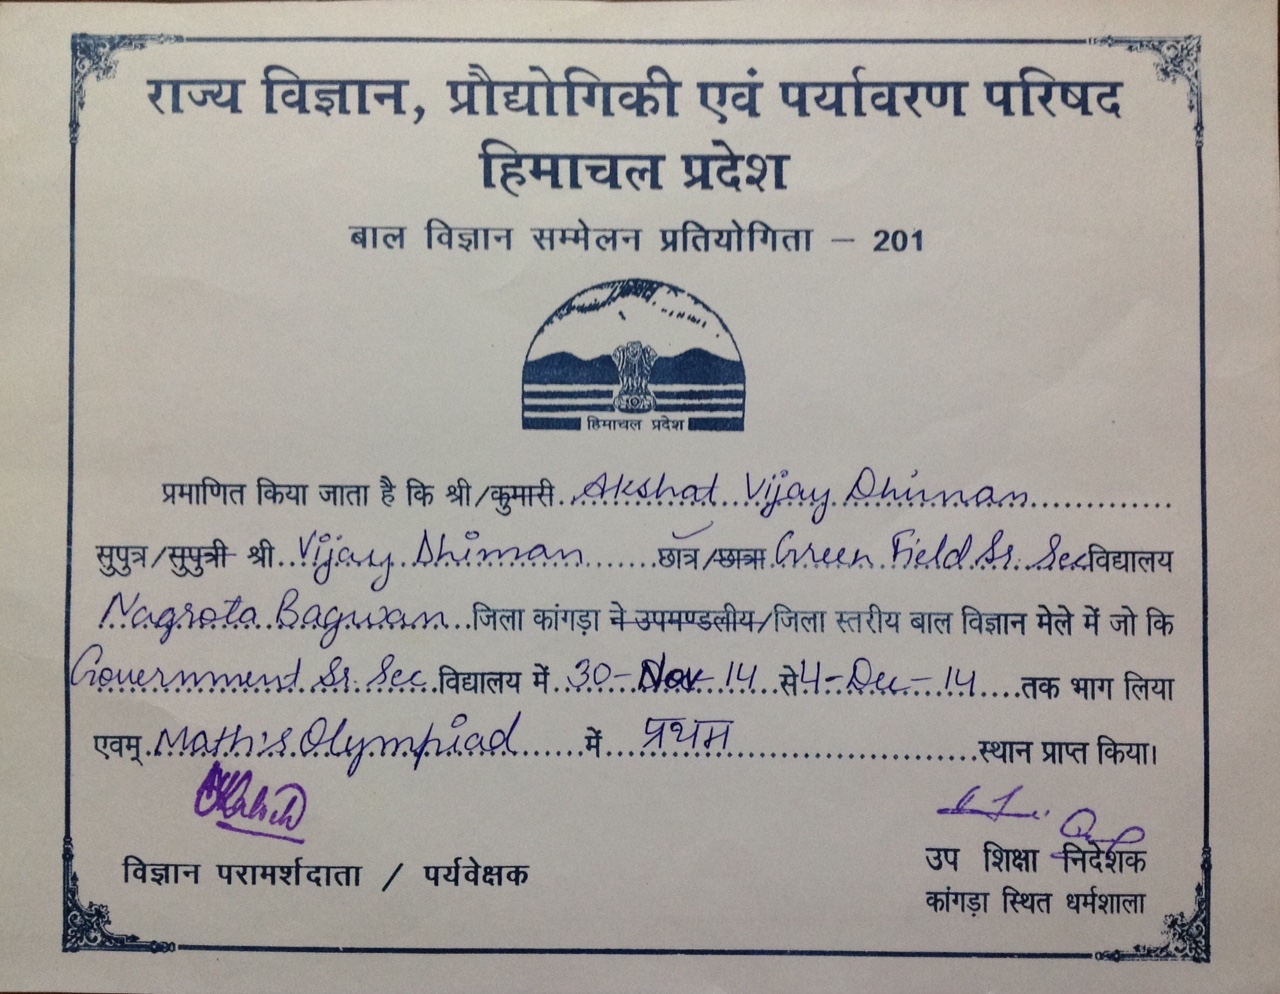 राज्य विज्ञान, प्रौद्योगिकी एवं पर्यावरण परिषद
हिमाचल प्रदेश
बाल विज्ञान सम्मेलन प्रतियोगिता – 201
हिमाचल प्रदेश
प्रमाणित किया जाता है कि श्री/कुमारी Akshat Vijay Dhiman
सुपुत्र/सुपुत्री श्री Vijay Dhiman छात्र/छात्रा Green Field Sr. Sec विद्यालय
Nagrota Bagwan जिला कांगड़ा ने उपमण्डलीय/जिला स्तरीय बाल विज्ञान मेले में जो कि
Government Sr. Sec विद्यालय में 30-Nov-14 से 4-Dec-14 तक भाग लिया
एवम् Math's Olympiad में प्रथम स्थान प्राप्त किया।
विज्ञान परामर्शदाता / पर्यवेक्षक
उप शिक्षा निदेशक
कांगड़ा स्थित धर्मशाला